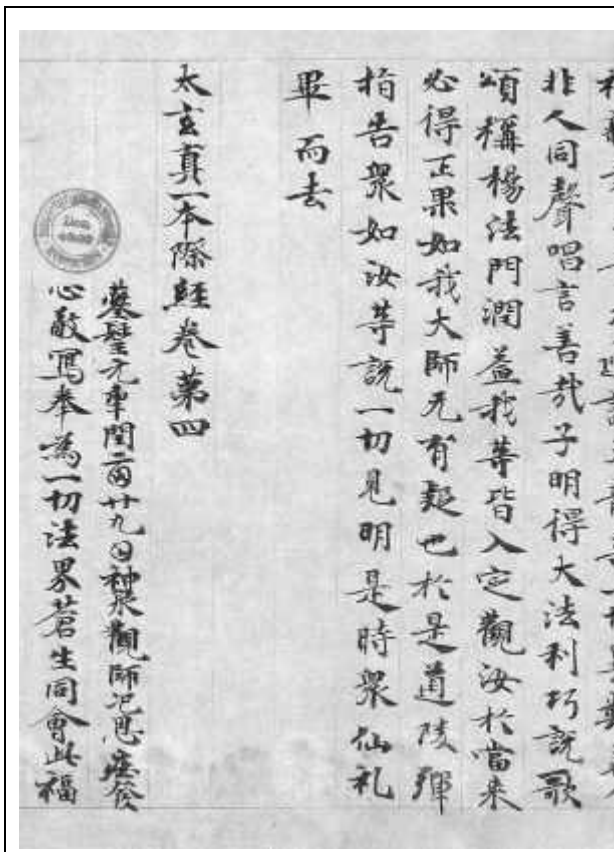 非人同聲唱言善哉子明得大法利巧說歌
頌稱楊法門潤益我等皆入定觀汝於當来
必得正果如我大師无有疑也於是道陵彈
指告眾如汝等說一切見明是時眾仙礼
畢而去
太玄真一本際經卷第四
元𠡦閏二𠥱廿九𡆠神泉觀師氾思莊發
心敬寫奉為一切法界蒼生同會此福